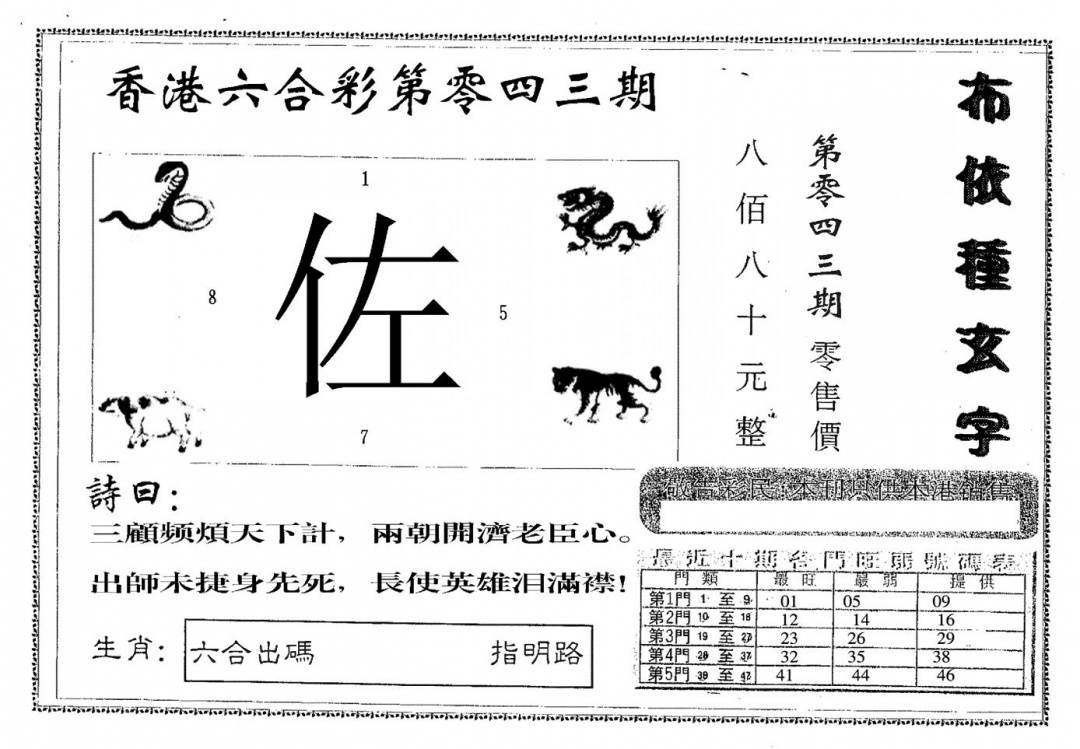 香港六合彩第零四三期
布依種玄字
第零四三期零售價
八佰八十元整
1
佐
8
5
7
詩曰：
三顧频煩天下計，兩朝開濟老臣心。
出師未捷身先死，長使英雄泪滿襟!
生肖：
六合出碼 指明路
敬告彩民:本刊只供本港銷售
最近十期各門旺弱號碼表
門類 最旺 最弱 提供
第1門 1 至 9 01 05 09
第2門 10 至 18 12 14 16
第3門 19 至 27 23 26 29
第4門 28 至 37 32 35 38
第5門 38 至 47 41 44 46